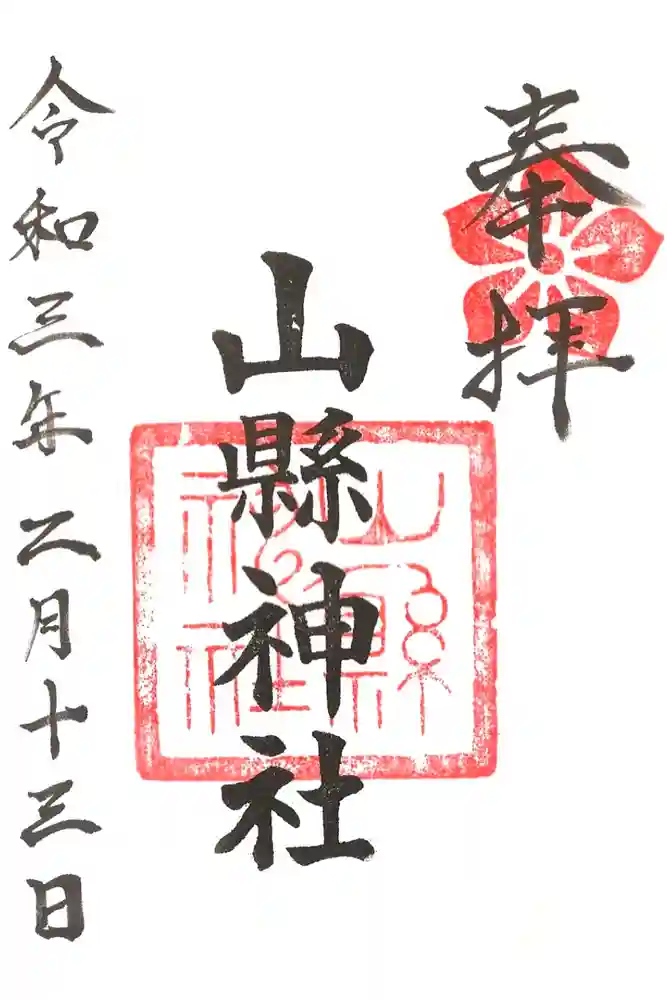 奉拝
山縣神社
山縣神社
令和三年二月十三日